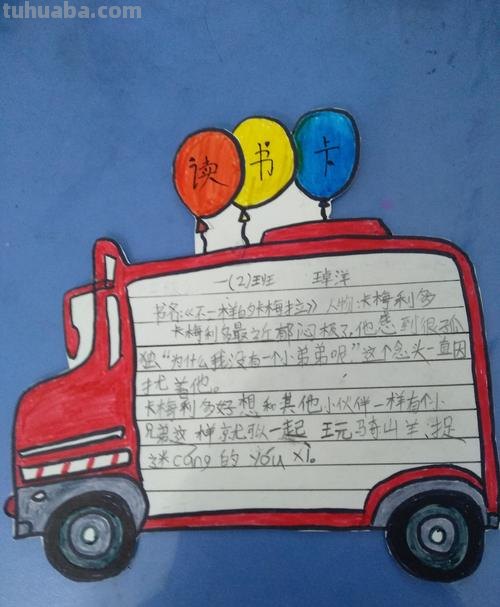 tuhuaba.com
读书卡
一(2)班 王卓洋
书名:《不一样的卡梅拉》人物:卡梅利多
卡梅利多最近郁闷极了,他感到很孤
独"为什么我没有一个小弟弟呢"这个念头一直困
扰着他。
卡梅利多好想和其他小伙伴一样有个小
兄弟这样就可以一起玩骑山羊,捉
迷cáng的yóu xì。